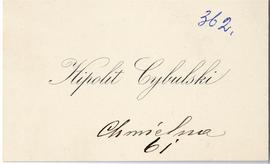 362.
Hipolit Cybulski
Chmielna
61